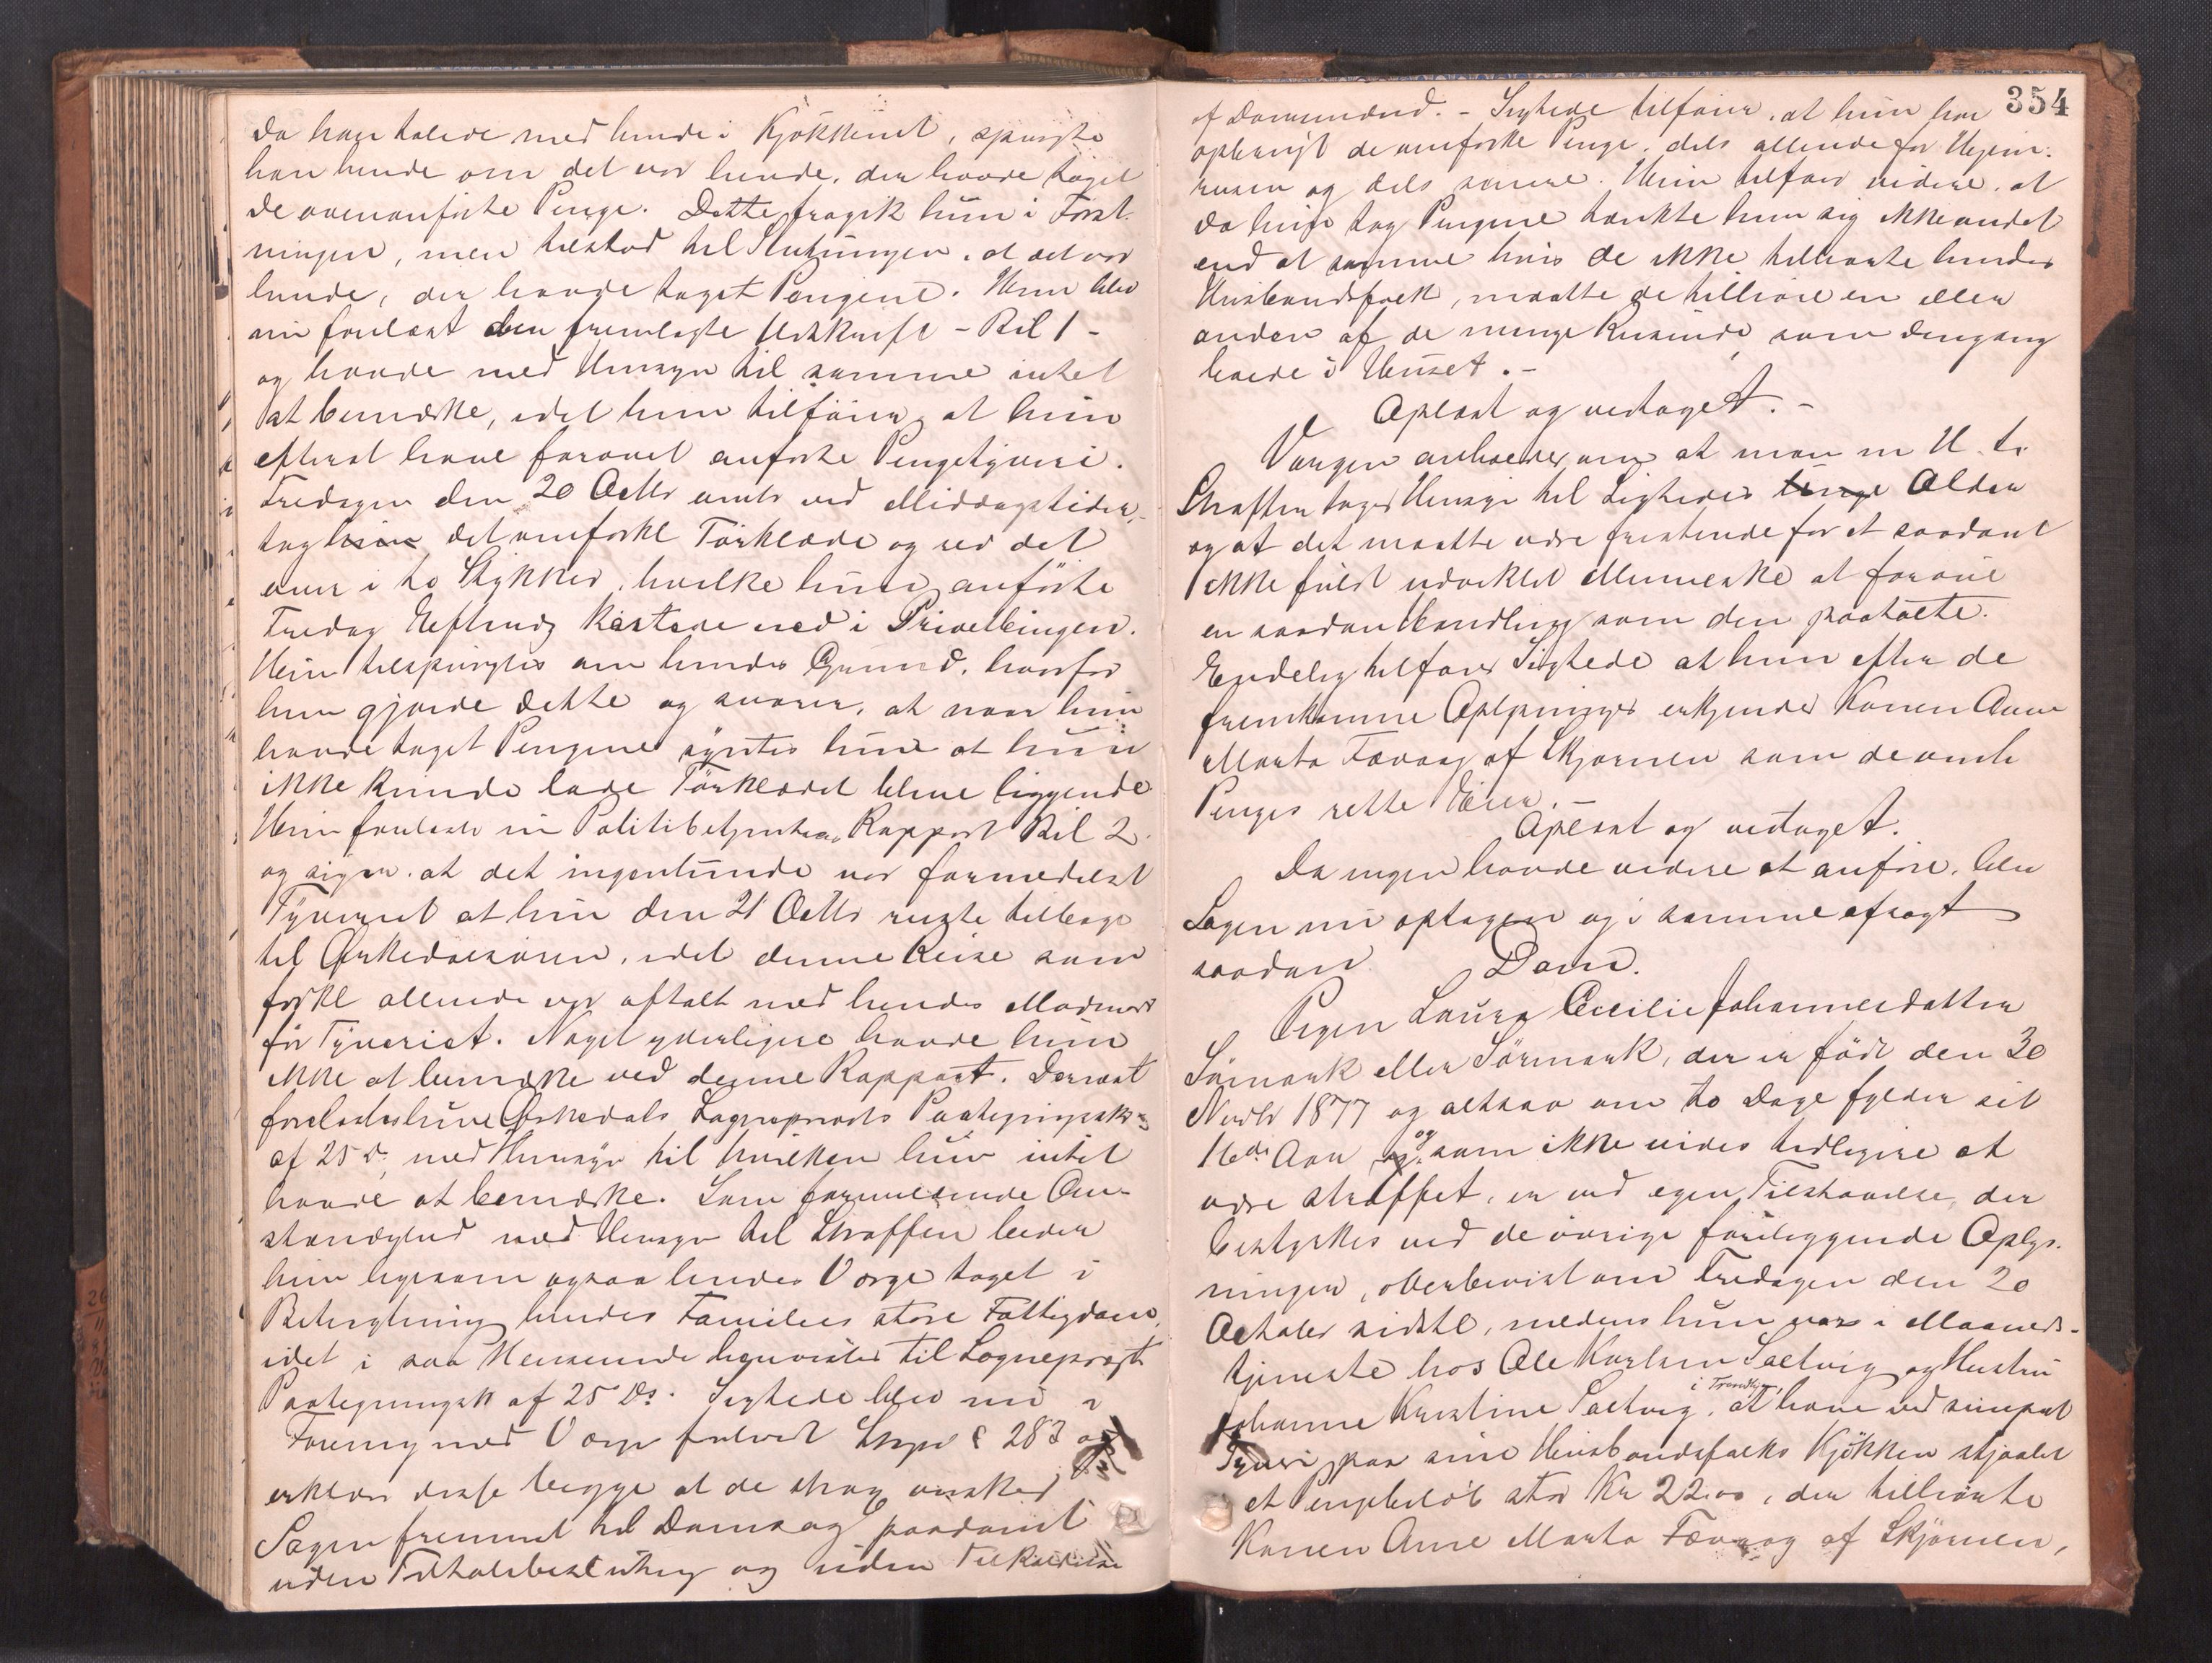 da han talede med hende i Kjökkenet, spurgte
han hende om det var hende, der havde taget
de ovenanförte Penge. Dette fragik hun i Först-
ningen, men tilstod til Slutningen, at det var
hende, der havde taget Pengene. Hun blev
nu forelæst den fremlagte Udskrift - Bil 1 -
og havde med Hensyn til samme intet
at bemærke, idet hun tilföier, at hun
efterat have forøvet anförte Pengetyveri.
Fredagen den 20 Octbr omtr ved Middagstider,
tog hun det omforkl Törklæde og rev det
over i to Stykker, hvilke hun anförte
Fredag Efterm kastede ned i Privetbingen.
Hun tilspurgtes om hendes Grund, hvorfor
hun gjorde dette og svarer, at naar hun
havde taget Pengene syntes hun at hun
ikke kunde lade Törklædet blive liggende
Hun forelæstes nu Politibetjentens Rapport Bil 2
og siger at det ingenlunde var formedelst
Tyveriet at hun den 21 Octbr reiste tilbage
til Ørkedalsøren, idet denne Reise som
forkl allerede var aftalt med hendes Madmor
för Tyveriet. Noget yderligere havde hun
ikke at bemærke ved denne Rapport. Dernæst
forelæstes hun Ørkedals Sogneprests Paategningssk
af 25 ds, med Hensyn til hvilken hun intet
havde at bemærke. Som formildende Om-
stændighed med Hensyn til Straffen beder
hun ligesom ogsaa hendes Verge taget i
Betragtning hendes Families store Fattigdom,
idet i saa Henseende henvistes til Sogneprests
Paategningssk af 25 Ds. Sigtede blev nu i
Forening med Verge forelæst Strpl § 283 og
erklærer disse begge at de strax ønsker
Sagen fremmet til Doms og paadömt
uden Tiltalebeslutning og uden Tilkaldelse
354
af Domsmænd. - Sigtede tilföier, at hun har
opbrugt de omforkl Penge, dels allerede för Hjem-
reisen og dels senere. Hun tilföier videre, at
da hun tog Pengene tænkte hun sig ikke andet
end at samme hvis de ikke tilhørte hendes
Husbondsfolk, maatte de tilhöre en eller
anden af de mange Reisende, som dengang
boede i Huset. -
Oplæst og vedtaget. -
Vergen anholder om at man m H. t.
Straffen tager Hensyn til Sigtedes unge Alder
og at det maatte være fristende for et saadant
ikke fuldt udviklet Menneske at forøve
en saadan Handling som den paatalte.
Endelig tilföier Sigtede at hun efter de
fremkomne Oplysninger erkjender Konen Anne
Marta Fævaag af Skjørnen som de omh
Penges rette Eier. -
Oplæst og vedtaget.
Da ingen havde videre at anföre, blev
Sagen nu optagen og i samme afsagt
saadan Dom.
Pigen Laura Cecilie Johannesdatter
Sömark eller Sörmark, der er född den 30
Novbr 1877 og altsaa om to Dage fylder sit
16de Aar og som ikke vides tidligere at
være straffet, er ved egen Tilstaaelse, der
bestyrkes ved de övrige foreliggende Oplys-
ninger, overbevist om Fredagen den 20
October sidstl, medens hun var i Maaneds-
tjeneste hos Ole Karlsen Saltvig og Hustru
Johanne Kristine Saltvig, i Trondhjem, at have ved simpelt
Tyveri paa sine Husbondsfolks Kjökken stjaalet
et Pengebelöb stor Kr 22.00, der tilhörte
Konen Anne Marta Fævaag af Skjörnen,